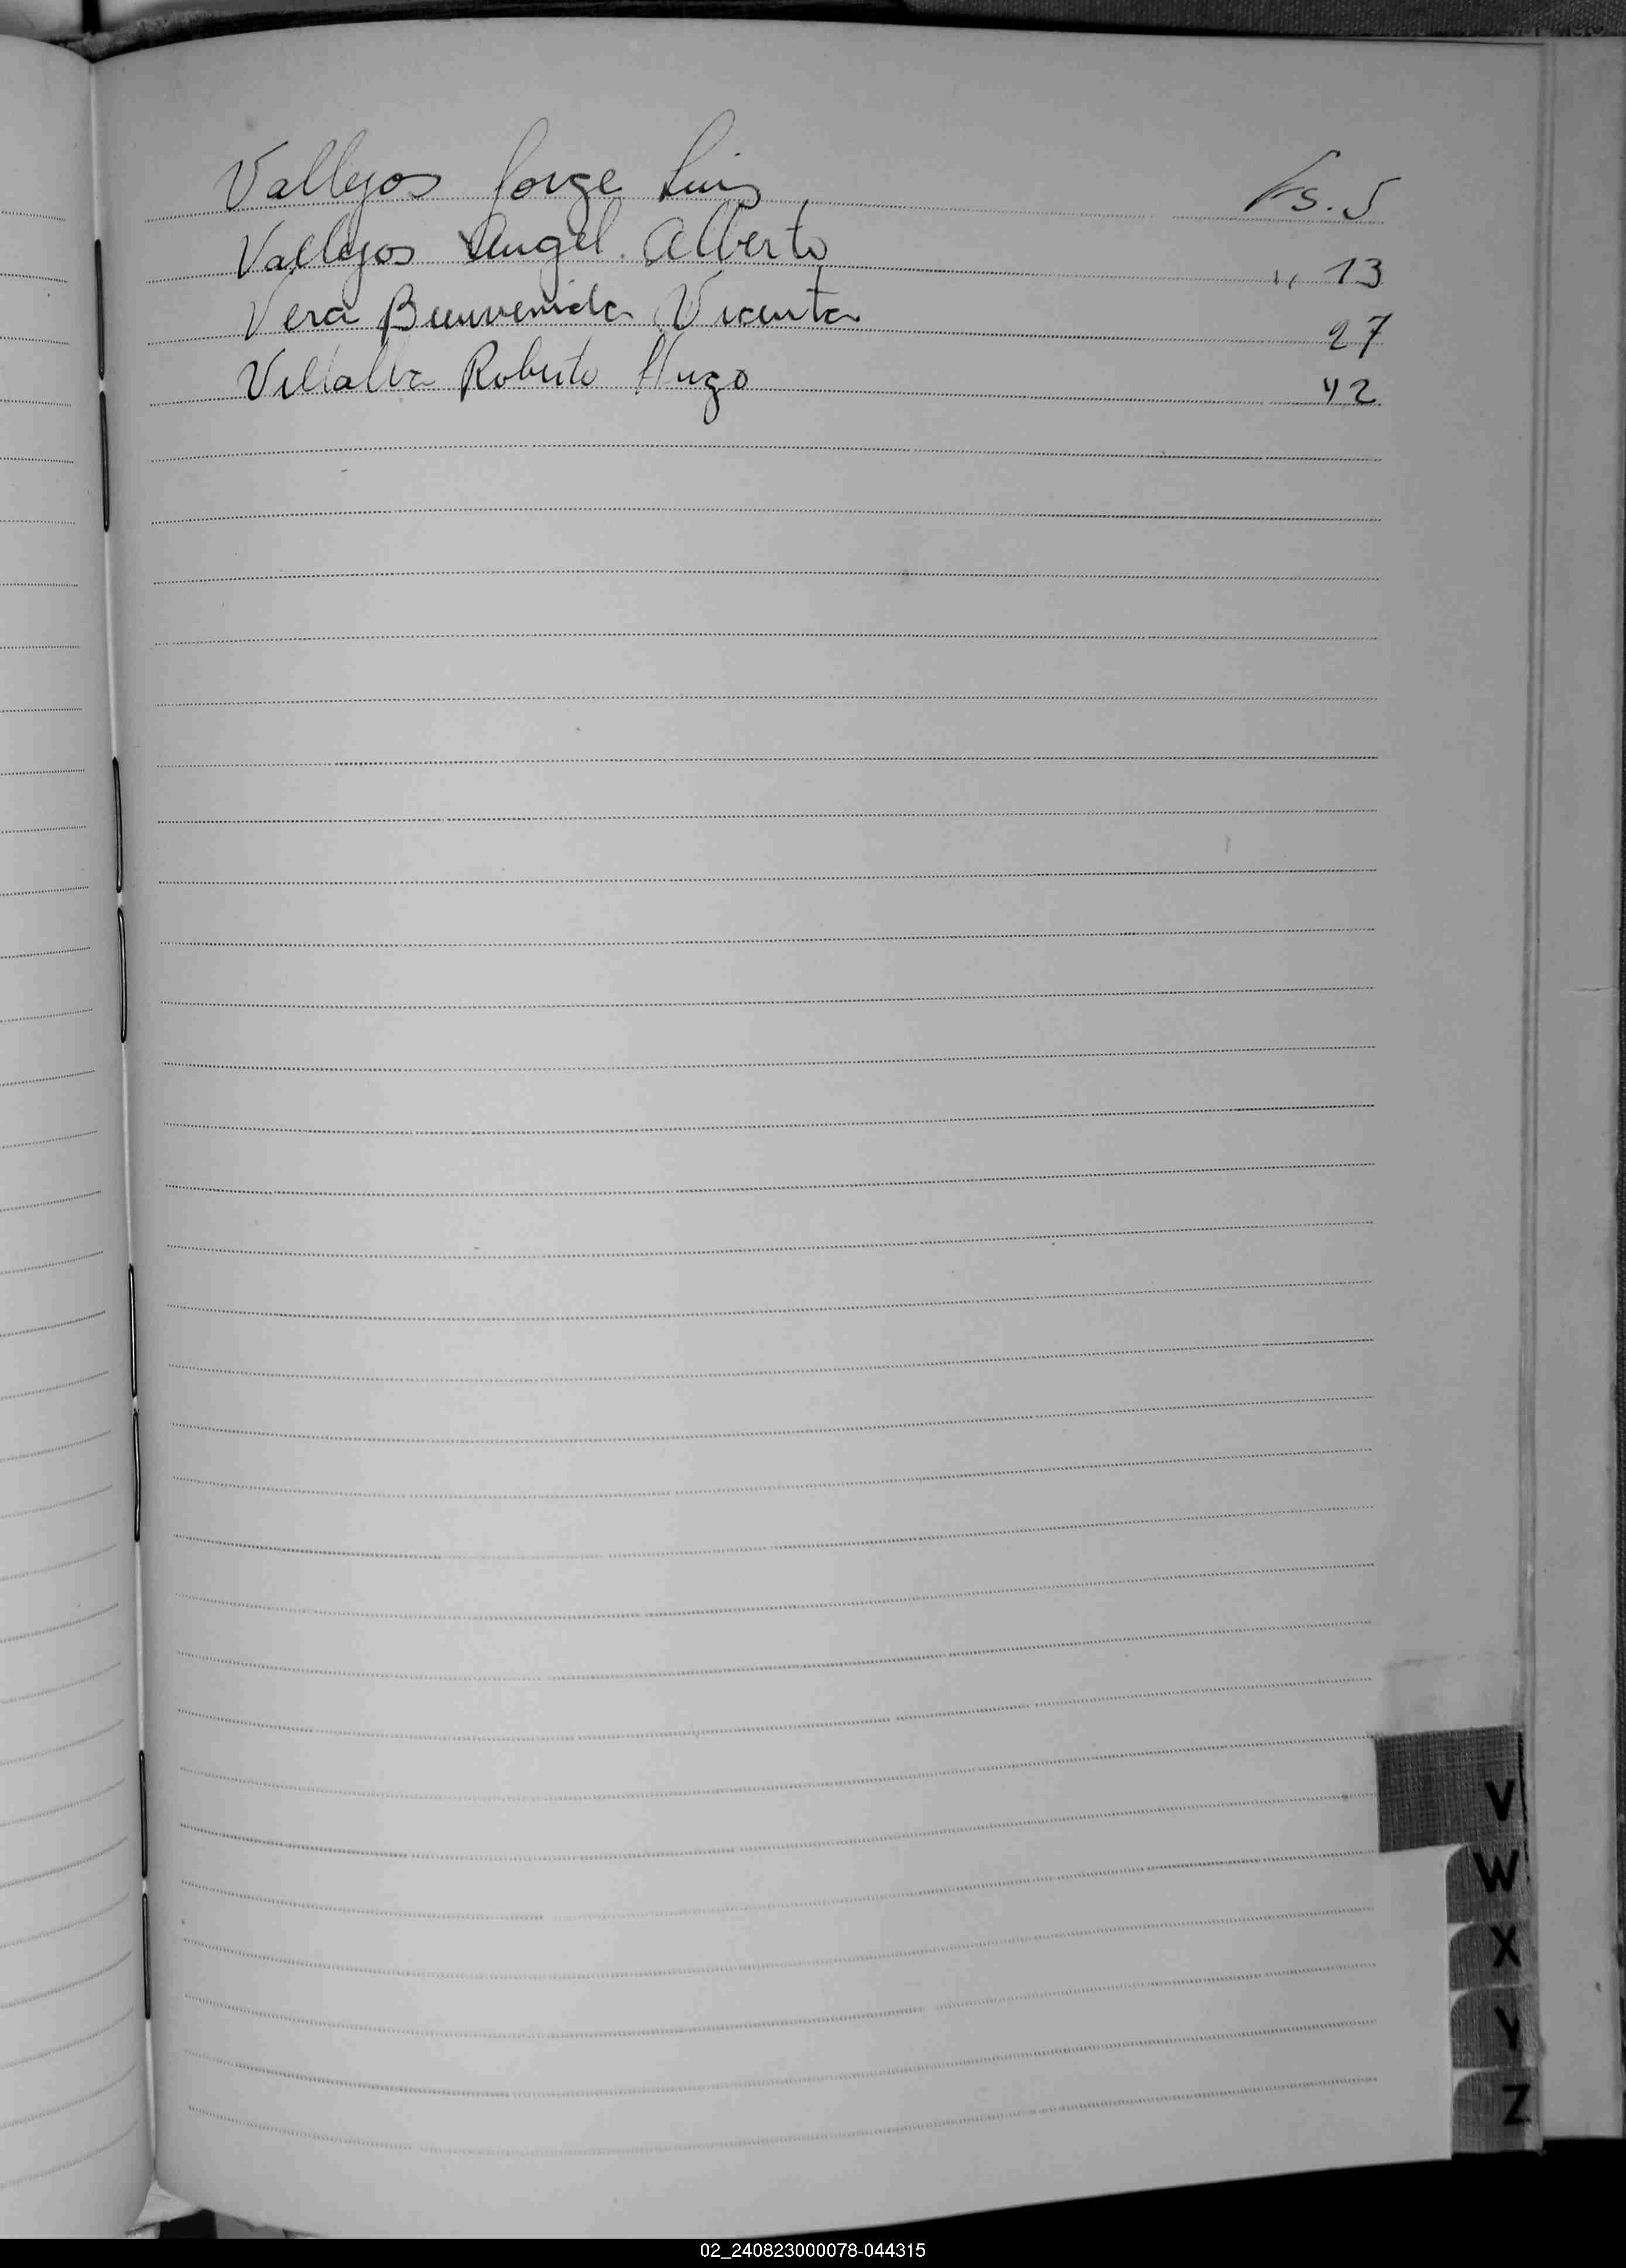 Vallejos Jorge Luis Fs. 5
Vallejos Angel Alberto ,, 13
Vera Bienvenida Vicenta 27
Villalva Roberto Hugo 42
V
W
X
Y
Z
02_240823000078-044315